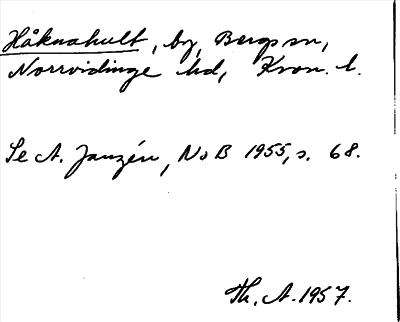 Håknahult, by, Bergs sn,
Norrvidinge hd, Kron. l.
Se A. Janzén, NoB 1955, s. 68.
Th. A. 1957.